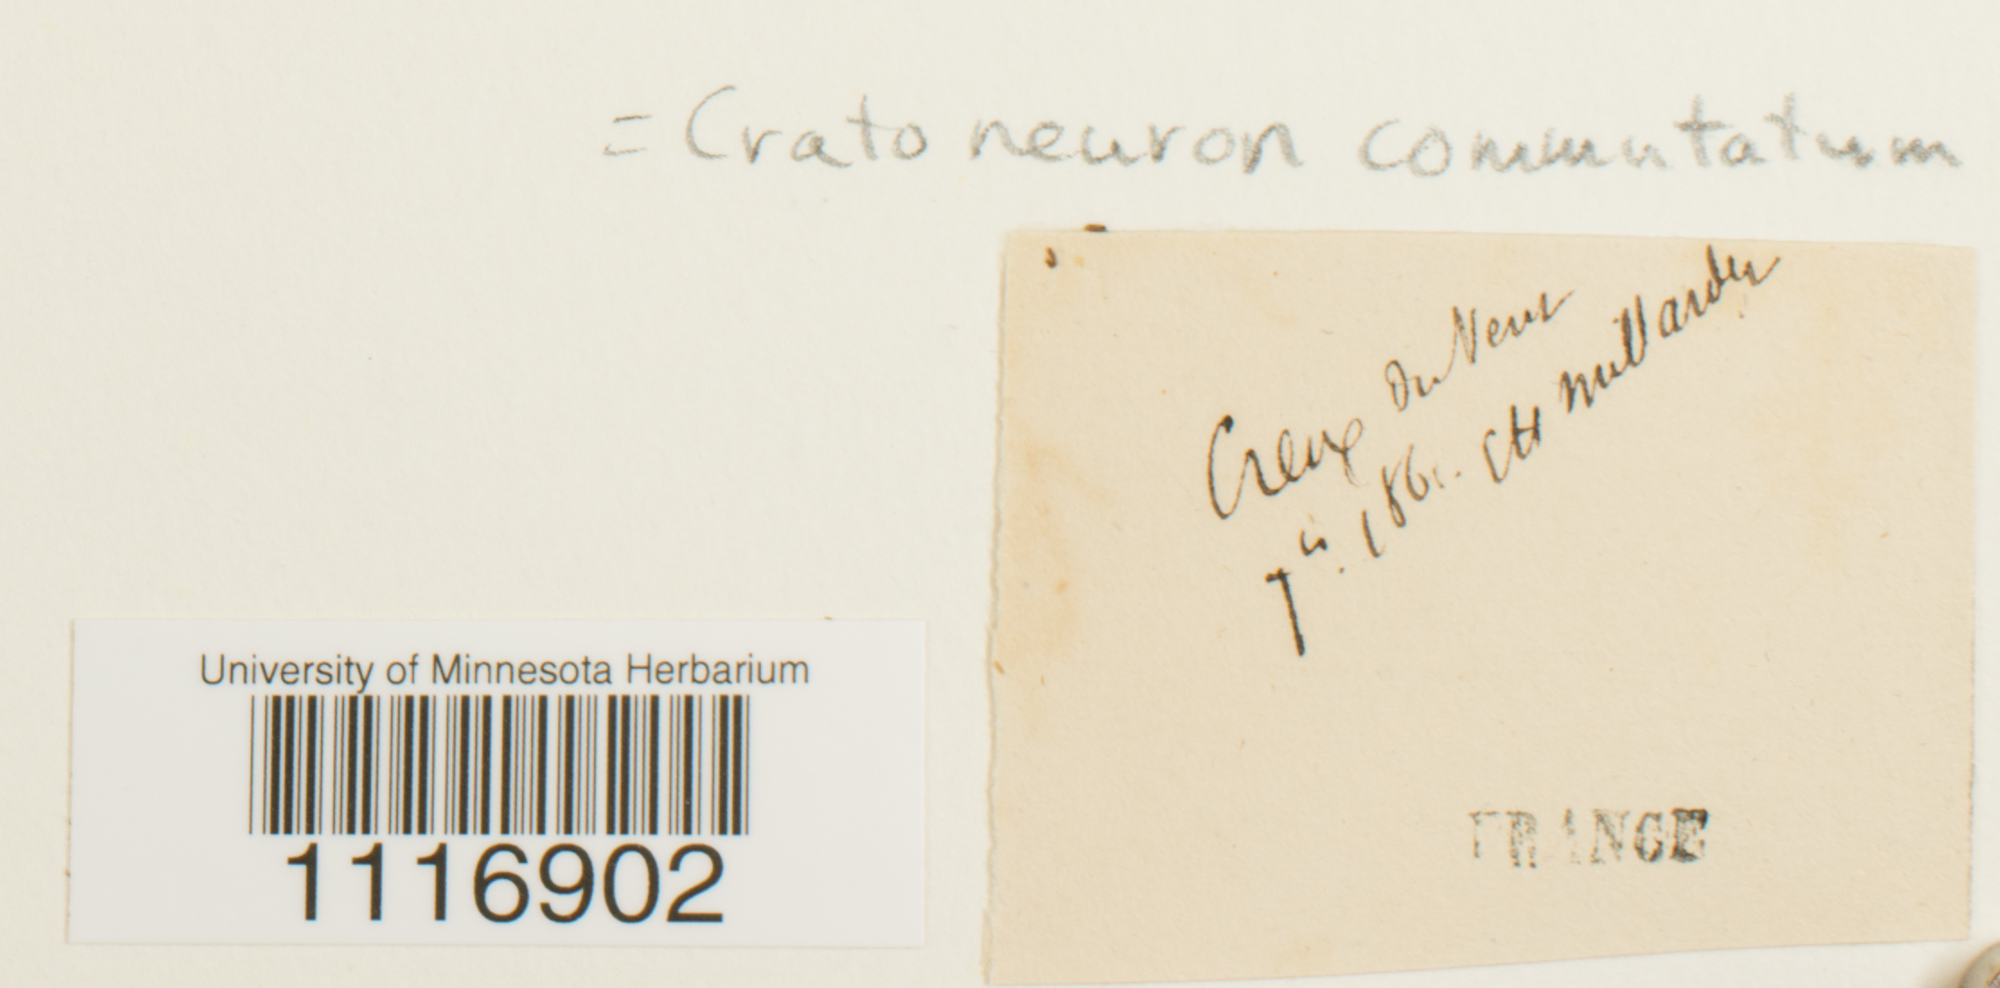 = Cratoneuron commutatum
Creux du Vent
186
FRANCE
University of Minnesota Herbarium
1116902